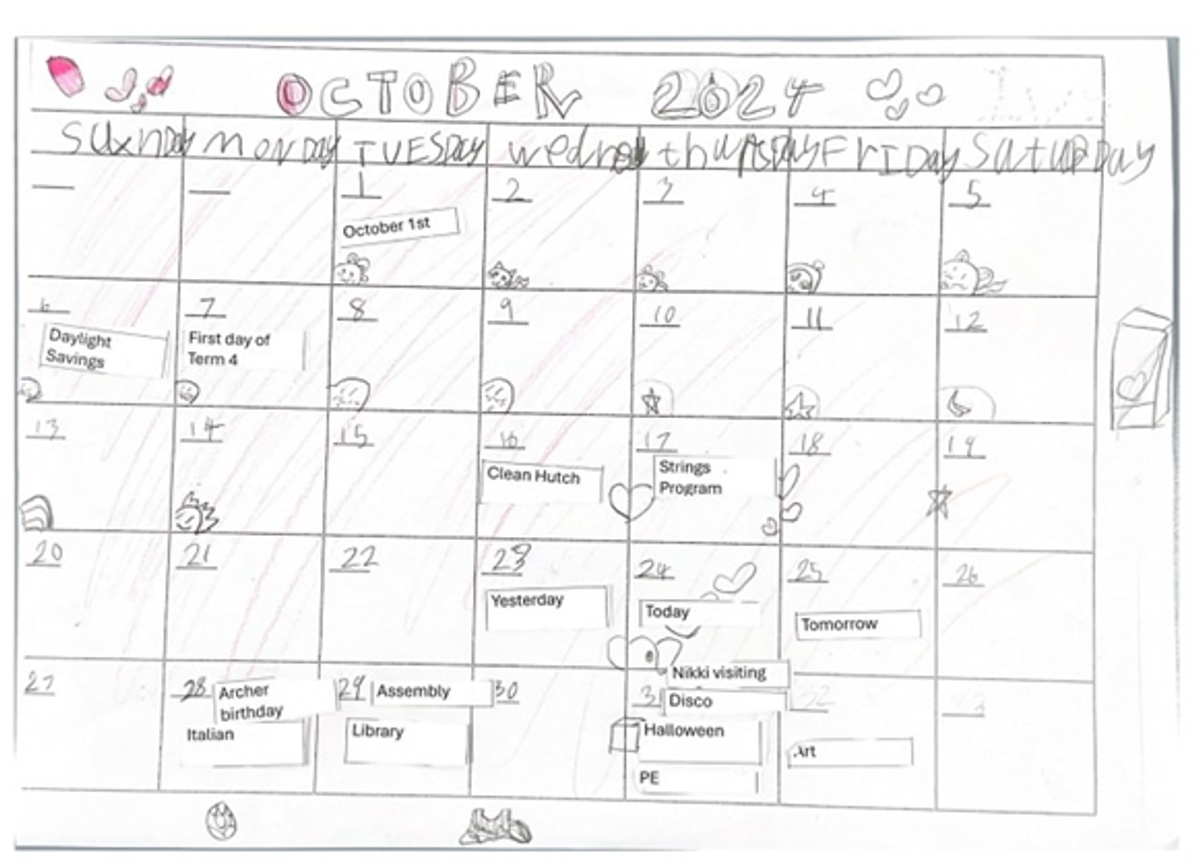 OCTOBER 2024
SUxnDAy monDAy TUESDAy wednesday thursDAy FRIDAy SatURDay
1 2 3 4 5
October 1st
6 7 8 9 10 11 12
Daylight
Savings
First day of
Term 4
13 14 15 16 17 18 19
Clean Hutch
Strings
Program
20 21 22 23 24 25 26
Yesterday
Today
Tomorrow
27 28 29 30 31 32 33
Archer
birthday
Italian
Assembly
Library
Nikki visiting
Disco
Halloween
PE
Art